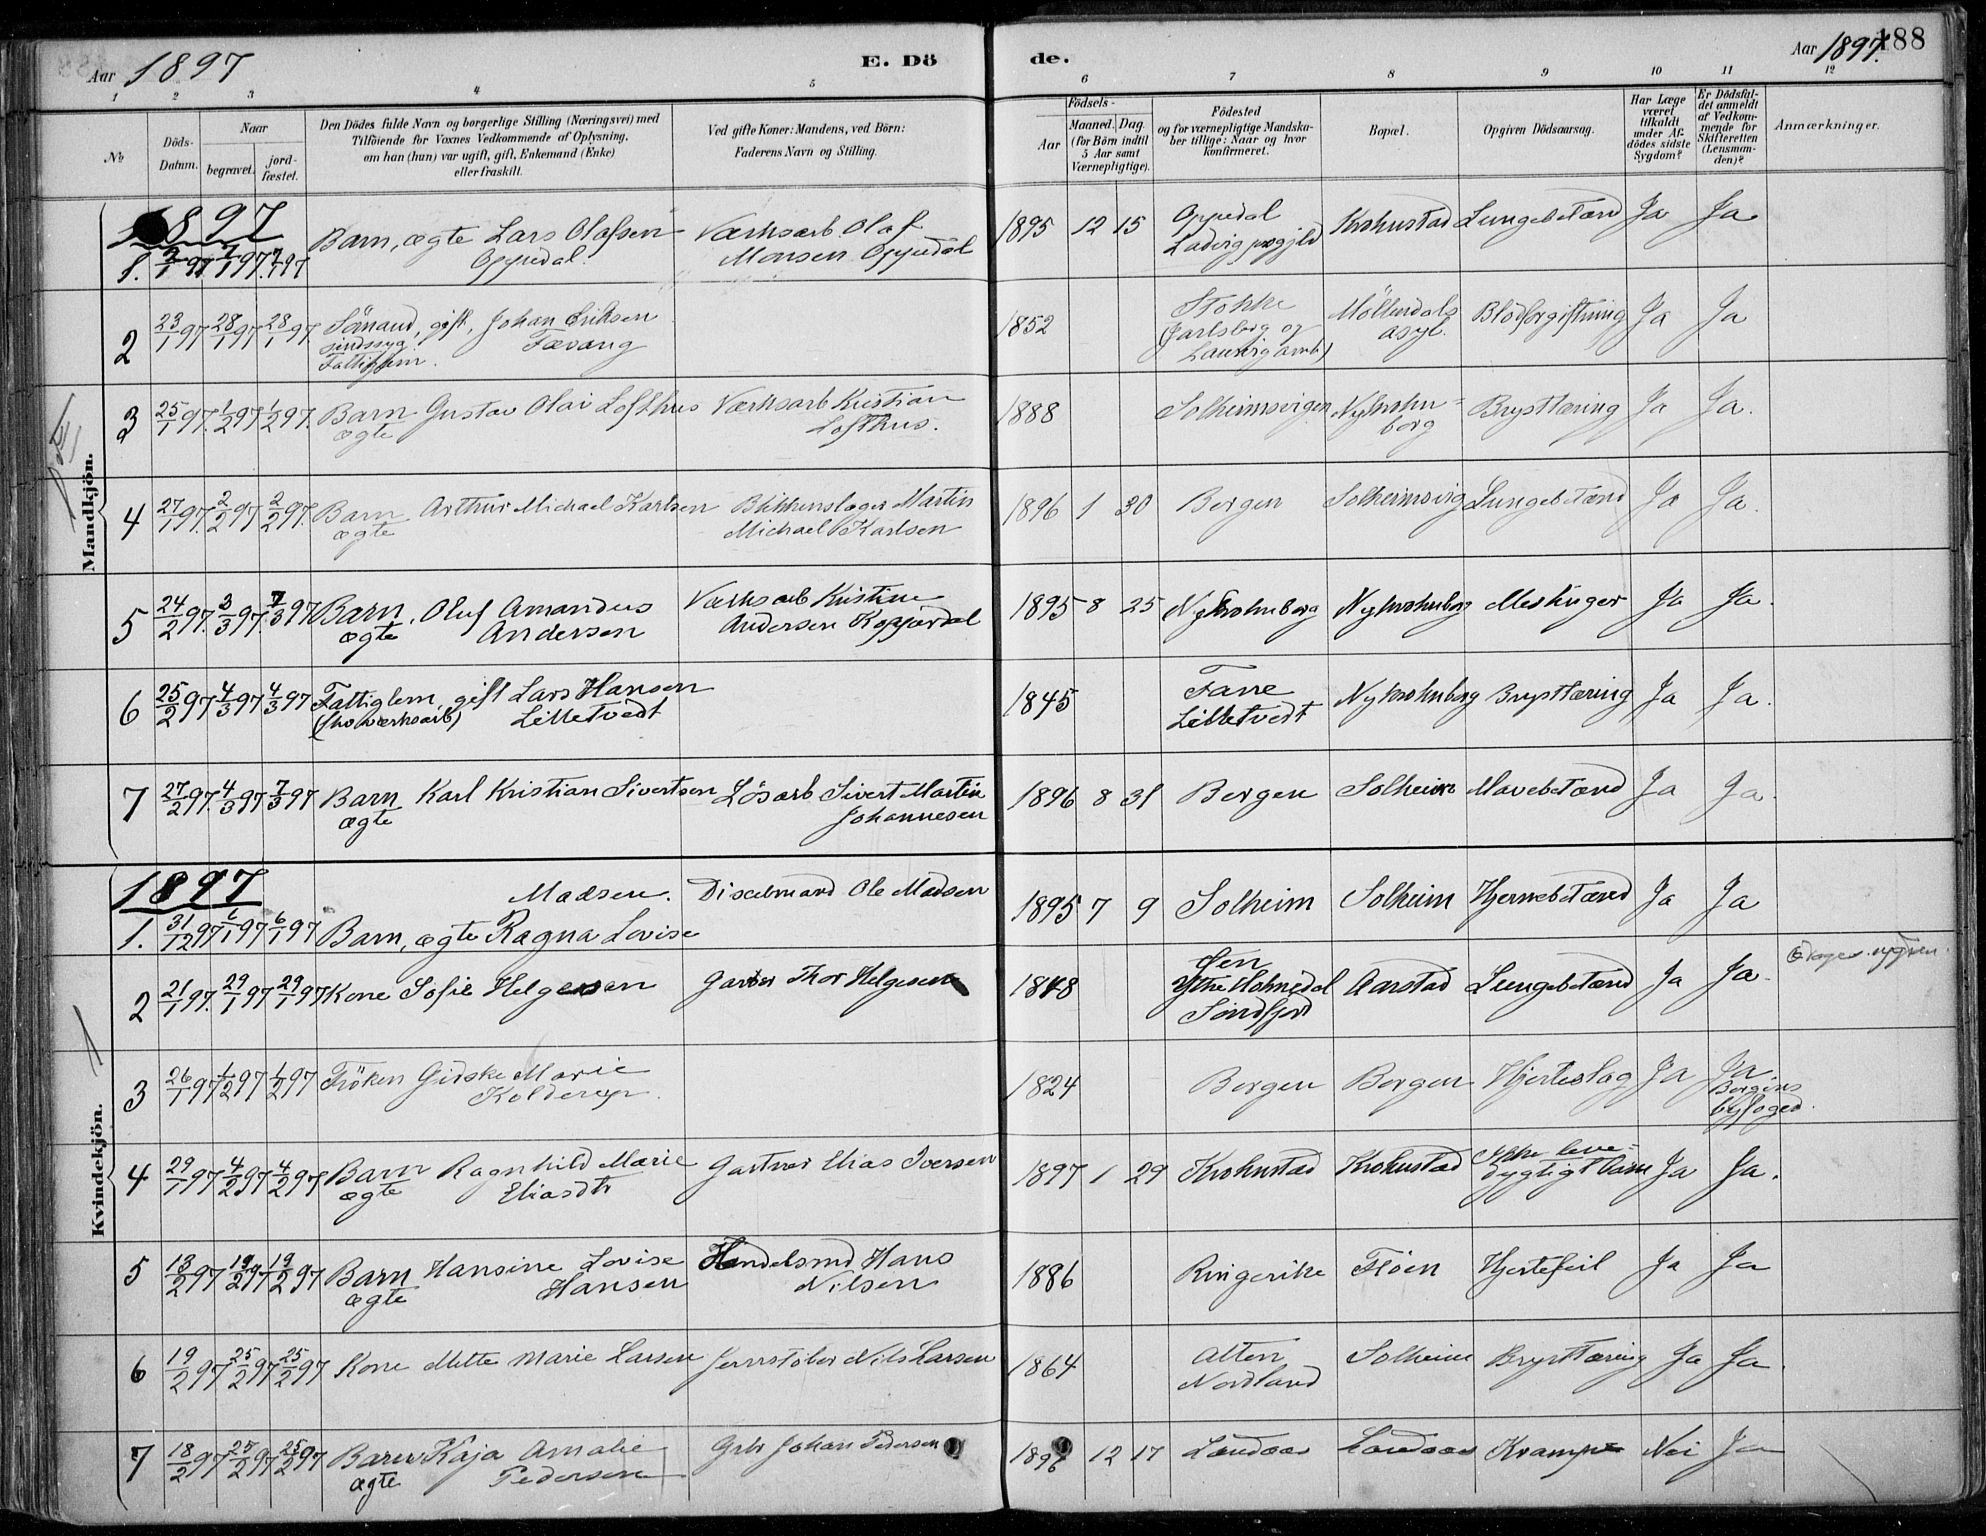 Aar 1897
E. Dö
de.
Aar 1897.
188
1 2 3 4 5 6 7 8 9 10 11 12
№
Döds-Datum.
Naar
begravet.
jord-fæstet.
Den Dödes fulde Navn og borgerlige Stilling (Næringsvei) med
Tilföiende for Voxnes Vedkommende af Oplysning,
om han (hun) var ugift, gift, Enkemand (Enke)
eller fraskilt.
Ved gifte Koner: Mandens, ved Börn:
Faderens Navn og Stilling.
Födsels-
Aar
Maaned. Dag
(for Börn indtil
5 Aar samt
Værnepligtige).
Födested
og for værnepligtige Mandska-
ber tillige: Naar og hvor
konfirmeret.
Bopæl.
Opgiven Dödsaarsag.
Har Læge
været
tilkaldt
under Af-
dödes sidste
Sygdom?
Er Dödsfal-
det anmeldt
af Vedkom-
mende for
Skifteretten
(Lensman-
den)?
Anmærkninger.
Mandkjön.
1897
1. 2/1 97 7/1 97 7/1 97 Barn, ægte Lars Olafsen Værksarb. Olaf 1895 12 15 Oppedal Krohnstad Lungebetænd Ja Ja
Oppedal. Monsen Oppedal Ladvig prgjld
2 23/1 97 28/1 97 28/1 97 Sömand, gift, Johan Eriksen 1852 Stokke Möllendals Blodforgiftning Ja Ja
sindssyg. Favang (Jarlsberg og asyl.
Fattiglem. Laurvig amt)
3 25/1 97. 1/2 97 1/2 97. Barn Gustav Olai Lofthus Værksarb Kristian 1888 Solheimsvigen Nykrohn- Brysttæring Ja Ja.
ægte Lofthus. borg
4 27/1 97. 2/2 97 2/2 97. Barn Arthur Michael Karlsen Blikkenslager Martin 1896 1 30 Bergen Solheimsvig Lungebetænd Ja Ja.
ægte Michael Karlsen
5 24/2 97. 3/3 97. 7/3 97 Barn, Oluf Amandus Værksarb Kristian 1895 8 25 Nykrohnborg Nykrohnborg Meslinger Ja Ja.
ægte Andersen Andersen Kopperdal
6 25/2 97 4/3 97 4/3 97 Fattiglem, gift Lars Hansen 1845 Fane Nykrohnborg Brysttæring Ja Ja.
(fhv værksarb) Lilletvedt Lilletvedt
7 27/2 97. 4/3 97 7/3 97 Barn Karl Kristian Sivertsen Lösarb Sivert Martin 1896 8 31 Bergen Solheim Mavebetænd Ja Ja.
ægte Johannesen
Kvindekjön.
1897
Madsen. Diselmand Ole Madsen 1895 7 9 Solheim Solheim Hjernebetænd Ja Ja
1. 31/12 97 6/1 97 6/1 97 Barn, ægte Ragna Lovise
2 21/1 97. 29/1 97 29/1 97 Kone Sofie Helgesen Garber Thor Helgesen 1848 Aarstad Lungebetænd Ja Ja.
Ytre Holmedal
Söndfjord
3 26/1 97 1/2 97 1/2 97 Fröken Gidske Marie 1824 Bergen Bergen Hjerteslag Ja Ja.
Kolderup. Bergens
byfoged.
4 29/1 97 4/2 97 4/2 97 Barn Ragnhild Marie Gartner Elias Iversen 1897 1 29 Krohnstad Krohnstad Ikke leve- Ja Ja.
ægte Eliasdtr dygtigt Barn
5 13/2 97 19/2 97 19/2 97 Barn Hansine Lovise Handelsmd Hans 1886 Ringerike Flöen Hjertefeil Ja Ja
ægte Hansen Nilsen
6 19/2 97 25/2 97 25/2 97 Kone Mette Marie Larsen Jernstöber Nils Larsen 1864 Alten Solheim Brysttæring Ja Ja.
Nordland
7 18/2 97 25/2 97 25/2 97 Barn Kaja Amalie Gbr Johan Pedersen 1896 12 17 Landaas Landaas Krampe Nei Ja
ægte Pedersen